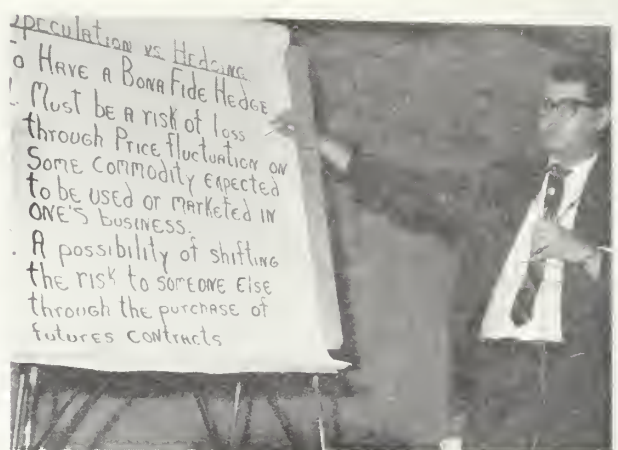 peculation vs Hedging
o Have a Bona Fide Hedge
Must be a risk of loss
through Price fluctuation on
Some Commodity expected
to be used or marketed in
one's business.
. A possibility of shifting
the risk to someone else
through the purchase of
futures contracts